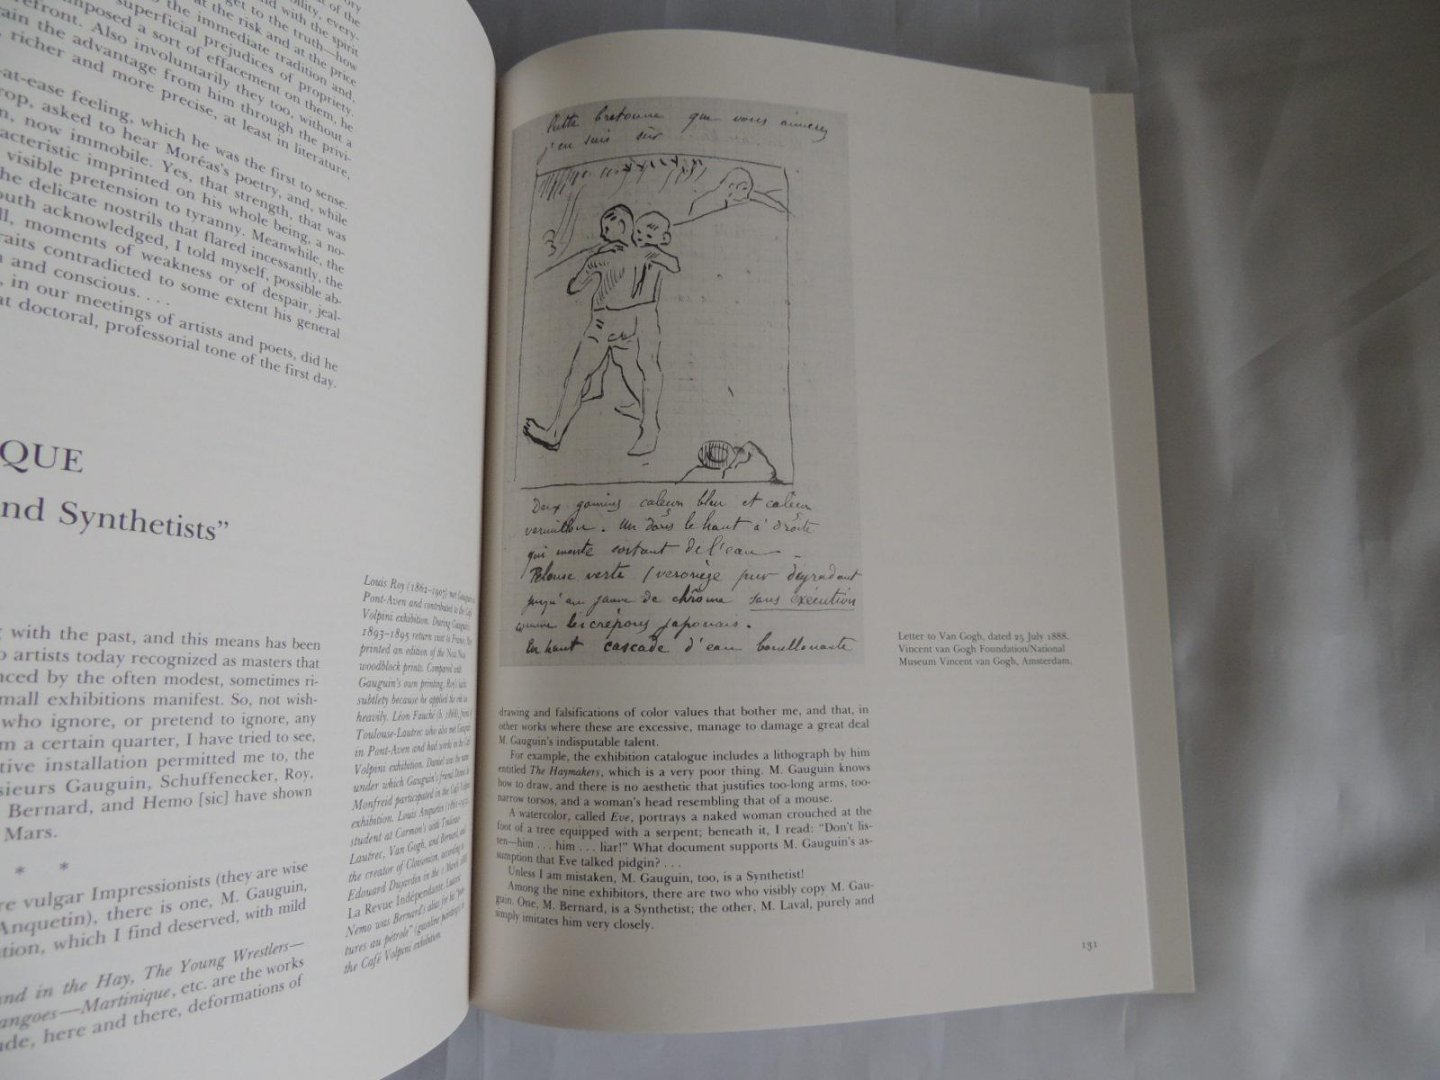 bility, every-
and with the spirit
get to the truth—how
at the risk and at the price
the immediate tradition and,
superficial prejudices of propriety.
imposed a sort of effacement on them, he
forefront. Also involuntarily they too, without a
the advantage from him through the privi-
richer and more precise, at least in literature,
-at-ease feeling, which he was the first to sense.
asked to hear Moréas's poetry, and, while
now immobile. Yes, that strength, that was
acteristic imprinted on his whole being, a no-
visible pretension to tyranny. Meanwhile, the
the delicate nostrils that flared incessantly, the
outh acknowledged, I told myself, possible ab-
ll, moments of weakness or of despair, jeal-
raits contradicted to some extent his general
n and conscious. . . .
, in our meetings of artists and poets, did he
at doctoral, professorial tone of the first day.
QUE
nd Synthetists”
g with the past, and this means has been
o artists today recognized as masters that
nced by the often modest, sometimes ri-
mall exhibitions manifest. So, not wish-
who ignore, or pretend to ignore, any
m a certain quarter, I have tried to see,
tive installation permitted me to, the
sieurs Gauguin, Schuffenecker, Roy,
Bernard, and Hemo [sic] have shown
Mars.
* *
re vulgar Impressionists (they are wise
Anquetin), there is one, M. Gauguin,
tion, which I find deserved, with mild
and in the Hay, The Young Wrestlers—
angoes—Martinique, etc. are the works
ude, here and there, deformations of
Louis Roy (1862–1907) met Gauguin
Pont-Aven and contributed to the Café
Volpini exhibition. During Gauguin's
1893–1895 return visit to France, Roy
printed an edition of the Noa Noa
woodblock prints. Compared with
Gauguin's own printing, Roy's lacks
subtlety because he applied the ink too
heavily. Léon Fauché (b. 1868),
Toulouse-Lautrec who also met Gauguin
in Pont-Aven and had works in the Café
Volpini exhibition. Daniel was the name
under which Gauguin's friend Daniel de
Monfreid participated in the Café Volpini
exhibition. Louis Anquetin (1861–1932),
student at Cormon's with Toulouse-
Lautrec, Van Gogh, and Bernard, and
the creator of Cloisonism, according to
Edouard Dujardin in the 1 March 1888
La Revue Indépendante.
Nemo was Bernard's alias for his “pein-
tures au pétrole” (gasoline paintings) in
the Café Volpini exhibition.
Petite bretonne que vous aimerez
j'en suis sûr
Deux gamins caleçon bleu et caleçon
vermillon. Un dans le haut à droite
qui monte sortant de l'eau –
Pelouse verte (veronèze pur dégradant
jusqu'au jaune de chrôme sans exécution
comme les crépons japonais.
En haut cascade d'eau bouillonante
Letter to Van Gogh, dated 25 July 1888.
Vincent van Gogh Foundation/National
Museum Vincent van Gogh, Amsterdam.
drawing and falsifications of color values that bother me, and that, in
other works where these are excessive, manage to damage a great deal
M. Gauguin's indisputable talent.
For example, the exhibition catalogue includes a lithograph by him
entitled The Haymakers, which is a very poor thing. M. Gauguin knows
how to draw, and there is no aesthetic that justifies too-long arms, too-
narrow torsos, and a woman's head resembling that of a mouse.
A watercolor, called Eve, portrays a naked woman crouched at the
foot of a tree equipped with a serpent; beneath it, I read: “Don't lis-
ten—him . . . him . . . liar!” What document supports M. Gauguin's as-
sumption that Eve talked pidgin? . . .
Unless I am mistaken, M. Gauguin, too, is a Synthetist!
Among the nine exhibitors, there are two who visibly copy M. Gau-
guin. One, M. Bernard, is a Synthetist; the other, M. Laval, purely and
simply imitates him very closely.
131